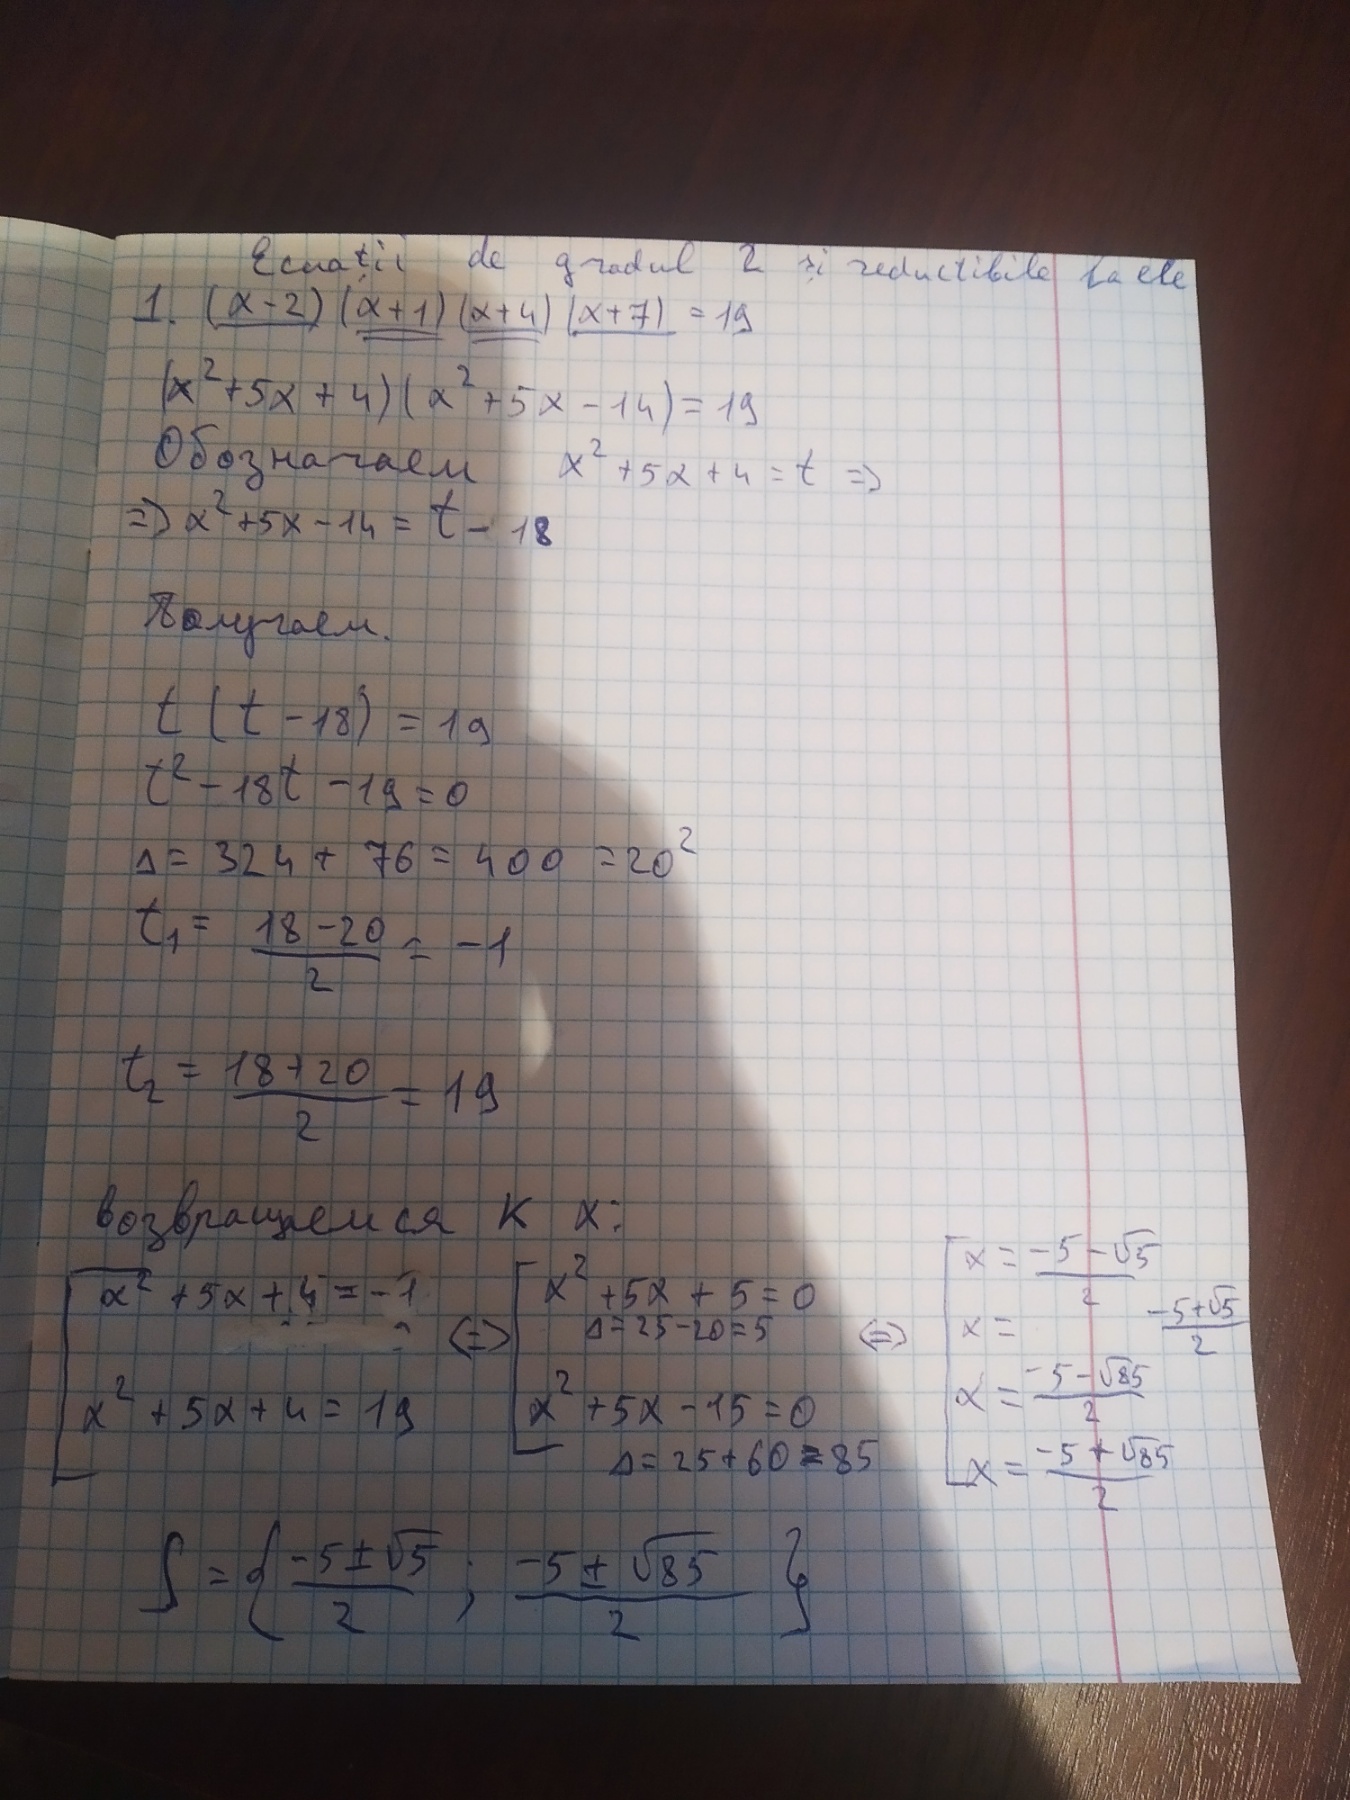 Ecuații de gradul 2 și reductibile la ele
1. (x-2)(x+1)(x+4)(x+7) = 19
(x²+5x+4)(x²+5x-14)=19
Обозначаем x²+5x+4=t =>
=> x²+5x-14 = t-18
Получаем.
t(t-18) = 19
t²-18t-19=0
Δ= 324+76=400 =20²
t₁= (18-20)/2 = -1
t₂ = (18+20)/2 = 19
возвращаемся к x:
[ x²+5x+4=-1 <=> [ x²+5x+5=0 <=> [ x = (-5-√5)/2
Δ=25-20=5 x = (-5+√5)/2
x²+5x+4=19 x²+5x-15=0 x = (-5-√85)/2
Δ=25+60=85 x = (-5+√85)/2
S = { (-5±√5)/2 ; (-5±√85)/2 }